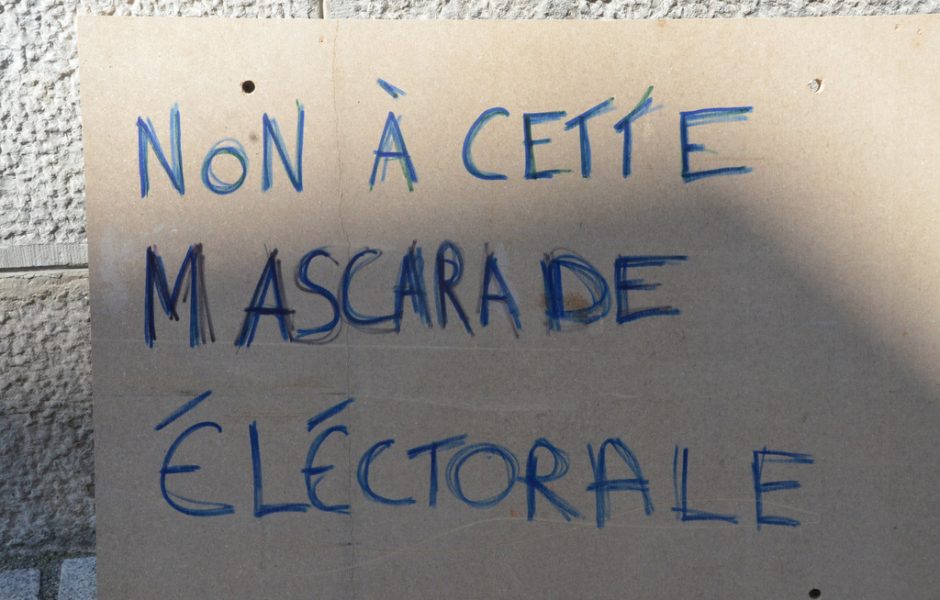 NON À CETTE
MASCARADE
ÉLÉCTORALE